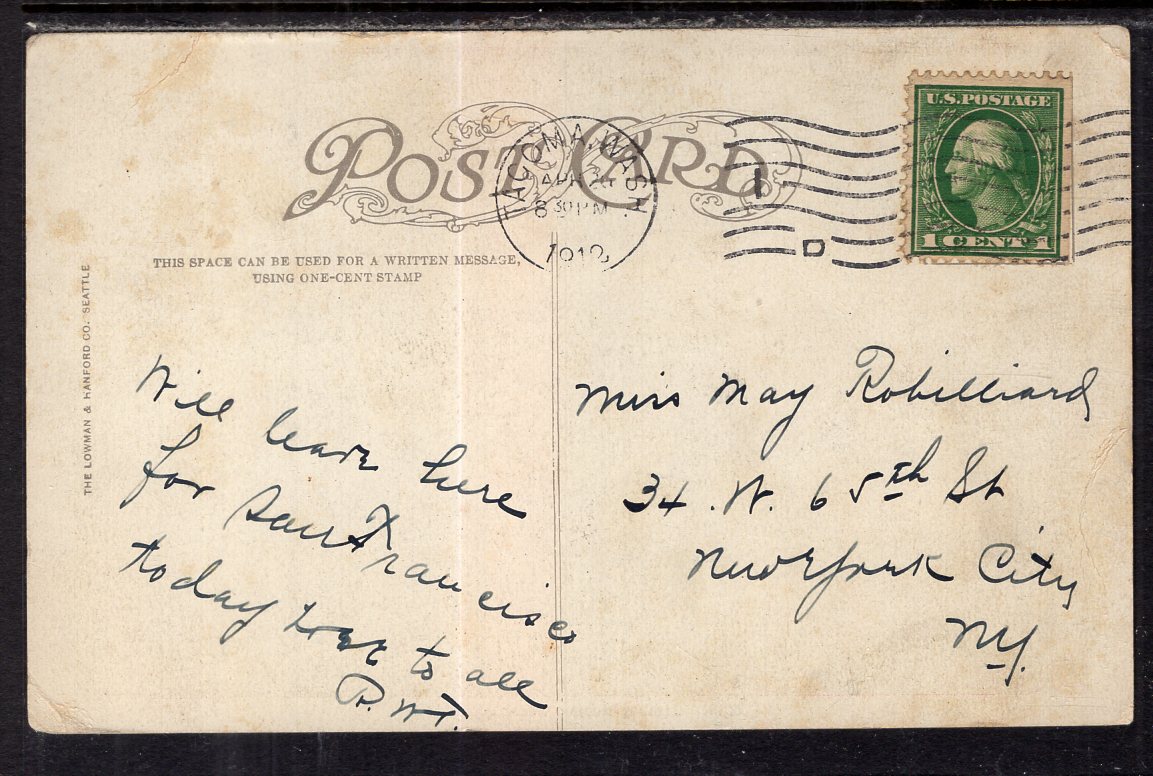 POST CARD
TACOMA, WASH
APR
8 30 PM
1912
U.S. POSTAGE
1 CENT 1
THIS SPACE CAN BE USED FOR A WRITTEN MESSAGE,
USING ONE-CENT STAMP
THE LOWMAN & HANFORD CO. SEATTLE
Will leave here
for San Francisco
today to all
R.W.T.
Miss May Robilliard
34 . W. 65th St
New York City
NY.